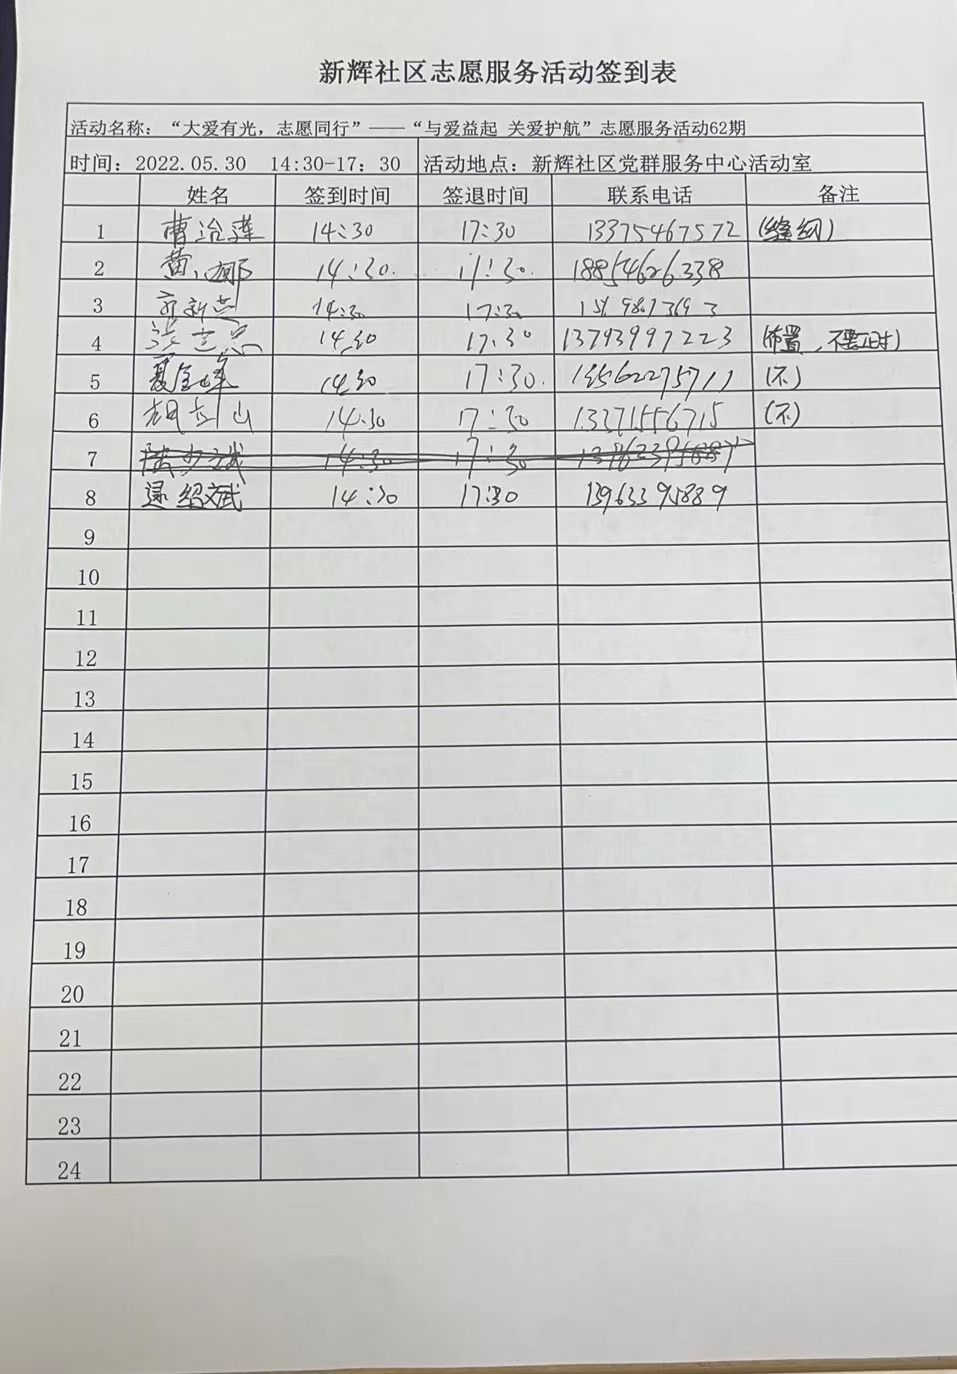 新辉社区志愿服务活动签到表
活动名称：“大爱有光，志愿同行”——“与爱益起 关爱护航”志愿服务活动62期
时间：2022.05.30 14:30-17：30 活动地点：新辉社区党群服务中心活动室
姓名 签到时间 签退时间 联系电话 备注
1 曹治莲 14:30 17:30 13375467572
2 黄 娜 14:30. 17:30. 18854626338
3 14:30 17:30
4 14:30 17:30 13793997223 (布置，不要工时)
5 14:30 17:30. 15562275711 (不)
6 胡玉山 14:30 17:30 13371556715 (不)
7 14:30 17:30
8 逯绍斌 14:30 17:30 13963395889
9
10
11
12
13
14
15
16
17
18
19
20
21
22
23
24